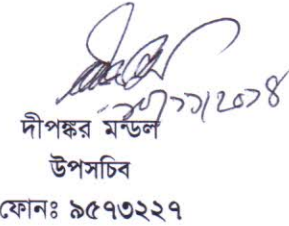 দীপঙ্কর মন্ডল
উপসচিব
ফোনঃ ৯৫৭৩২২৭